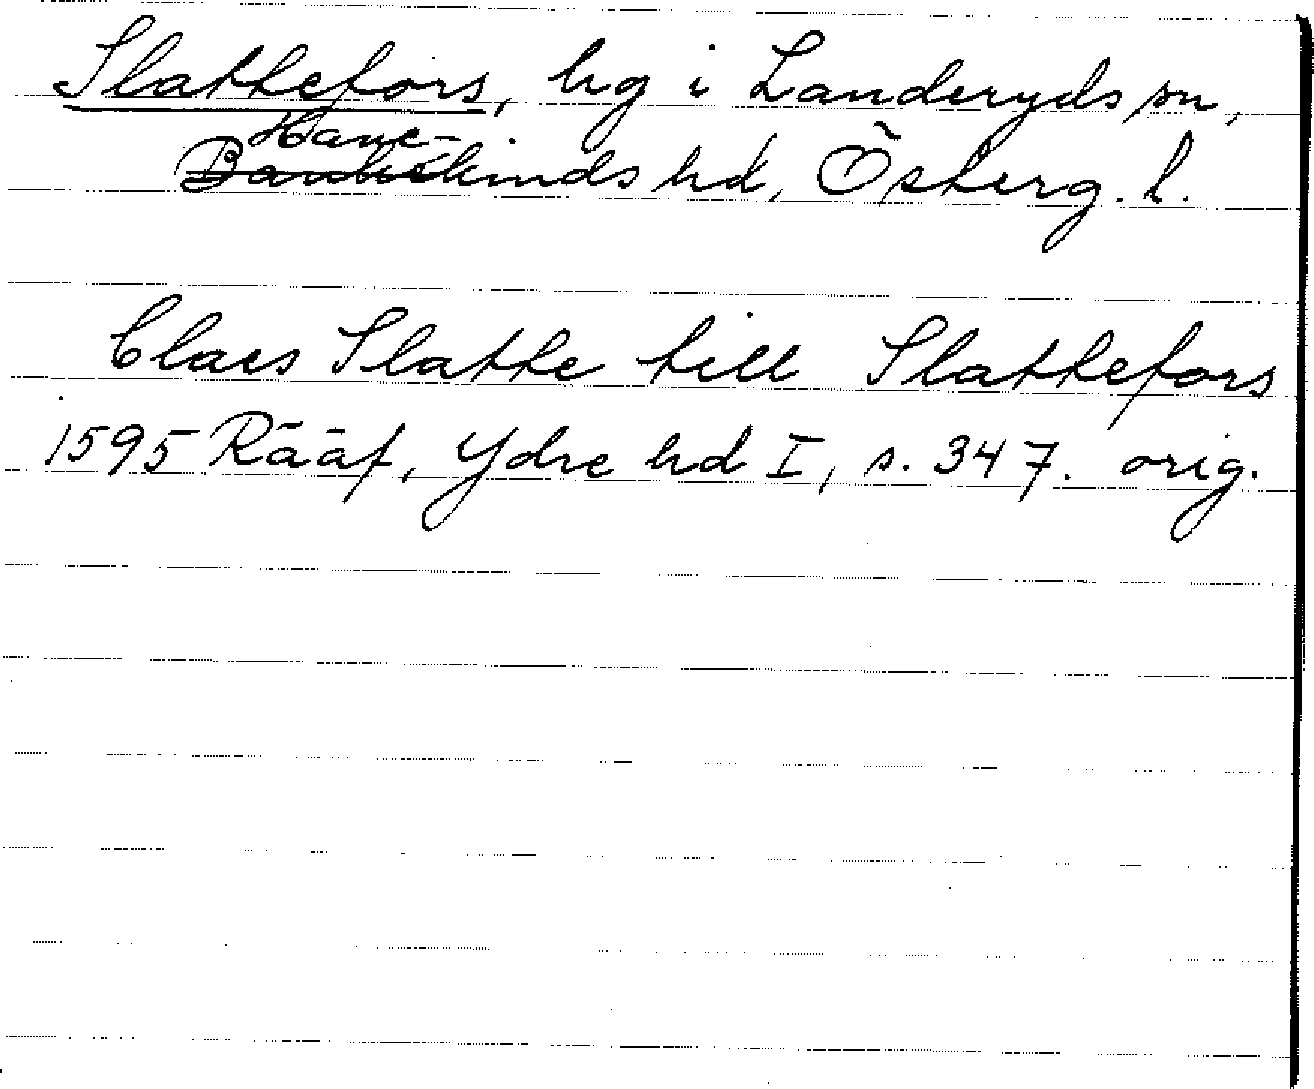 Slattefors, hg i Landeryds sn,
Hane-
Bankekinds hd, Österg. l.
Claes Slatte till Slattefors
1595 Rääf, Ydre hd I, s. 347. orig.